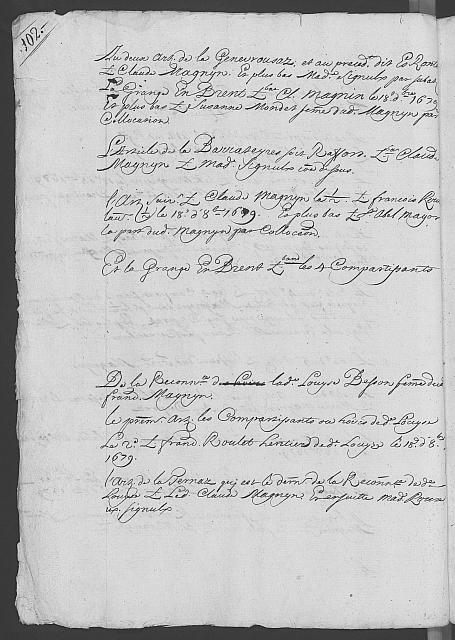 102.
Au deux Art. de la Genevrousaz, et au preced. dit Es Ronts
t. Claude Magnyn. Et plus bas Mad. Signulx par subas.
La Grange En Brent t. Cl. Magnin le 18. d. 1679
Et plus bas t. Susanne Mondet feme dud. Magnyn par
Collocation.
L'Article de la Barrasseyres soit Raffort t. Claude
Magnyn t. Mad. Signulx cõe dessus.
l'Art. suiv. t. Claude Magnyn la 1/2 t. francois Rou
(1/2) le 18. d' 8bre 1679. Et plus bas t. Abel Mayor
la part dud. Magnyn par Collocaõn.
Et la Grange En Brent t. les 4 Compartissants
De la Reconn.ce de lad. Louyse Besson feme de
franc. Magnyn.
Le prem. Art. les Compartissants ou hoirs de d. Louyse
Le 2. t. franc. Roulet heritier de d. Louyse le 18. d' 8bre
1679.
l'Art. de la Pernaz qui est le dern. de la Reconn.ce de d.
Louise t. Led. Claude Magnyn Et ensuitte Mad.
Signulx